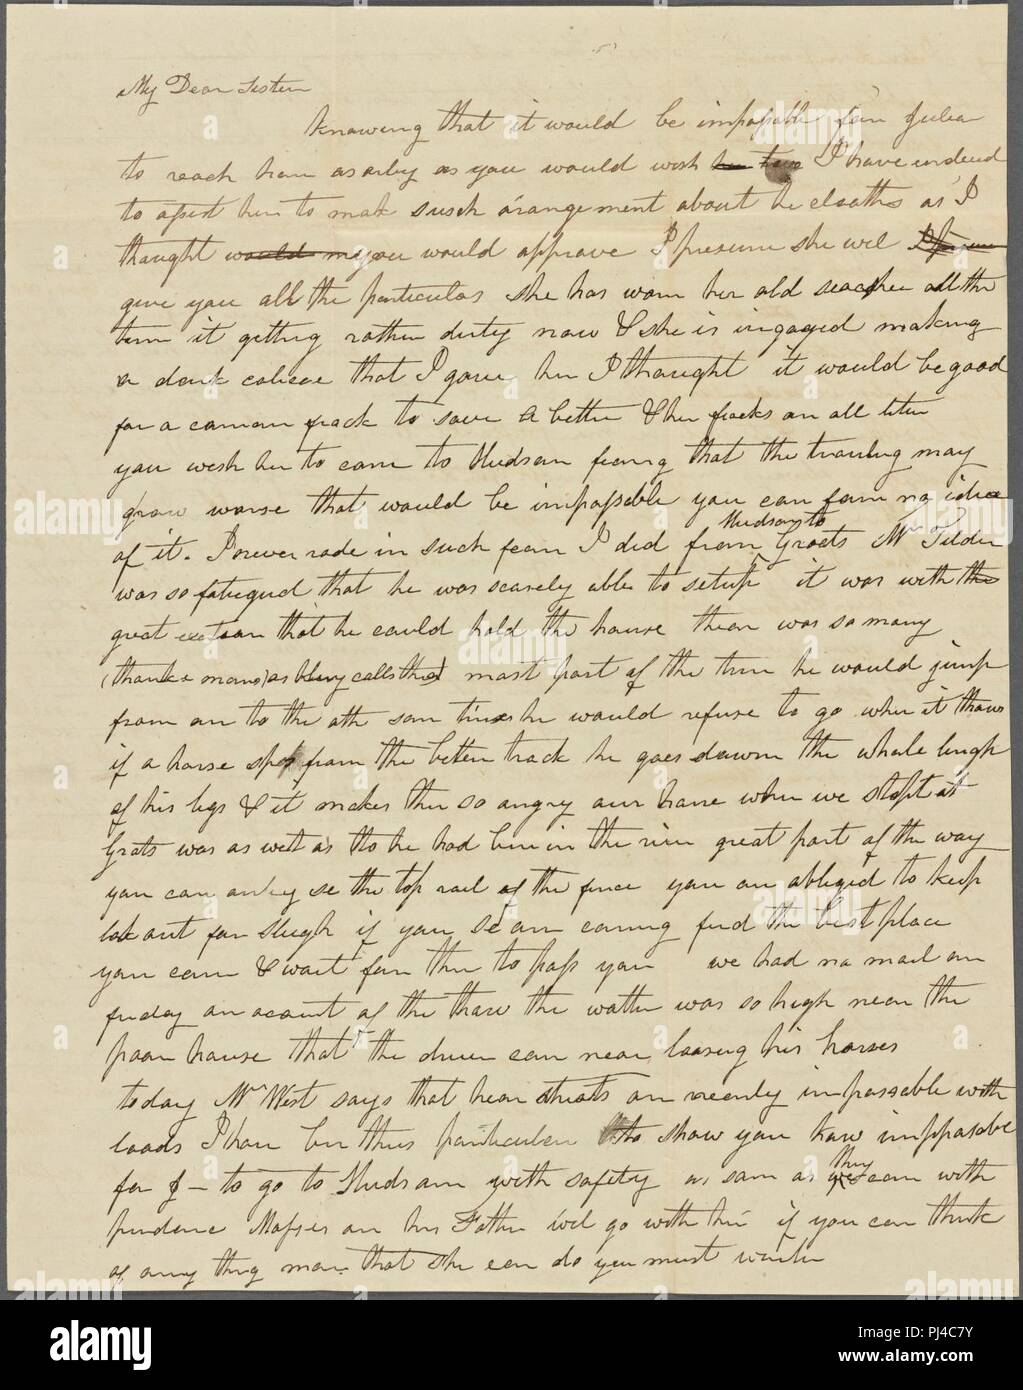 My Dear Sister
Knowing that it would be impossable for Julia
to reach hom as erly as you would wish I have indeud
to asist her to mak susch arangement about he cloaths as I
thought would you would approve I presum she wil
give you all the particulas she has worn her old all the
tim it getting rather dirty now & she is ingaged making
a dark that I gave her I thought it would be good
for a comon frock to save a better & her frocks on all
you wish her to com to Hudson feering that the traviling may
grow worse that would be impossable you can form no idea
of it. I never rode in such fear I did from Hudson to Groats Mr Tilden
was so fatiegued that he was scarsely able to it was with the
great that he could hold the horse thear was so many
(thank e mams) as calls them most part of the tim he would jump
from on to the oth som times he would refuse to go wher it thows
if a horse from the beten track he goes down the whole lengh
of his legs & it makes them so angry our horse when we stopt at
Grats was as wet as tto he had ben in the great part of the way
you can onley se the top rail of the fence you ar abliged to keep
lok out for slegh if you se on coming find the best place
you can & wait for them to pass you we had no mail on
friday on acount of the thaw the watter was so high near the
poor house that the driver com near loosing his horses
today Mr West says that hear streats ar neerly impassable with
loads I hav ben thus particuler to show you how imppasable
for J — to go to Hudson with safity as soon as they can with
prudenc Mosses or his Father wil go with her if you can think
of anny thing mor that she can do you must
alamy
a
alamy
Image ID: PJ4C7Y
www.alamy.com